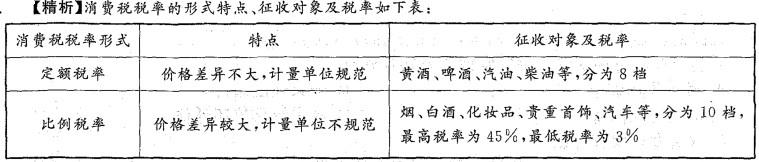 【精析】消费税税率的形式特点、征收对象及税率如下表:
消费税税率形式 特点 征收对象及税率
定额税率 价格差异不大,计量单位规范 黄酒、啤酒、汽油、柴油等,分为8档
比例税率 价格差异较大,计量单位不规范 烟、白酒、化妆品、贵重首饰、汽车等,分为10档,
最高税率为45%,最低税率为3%